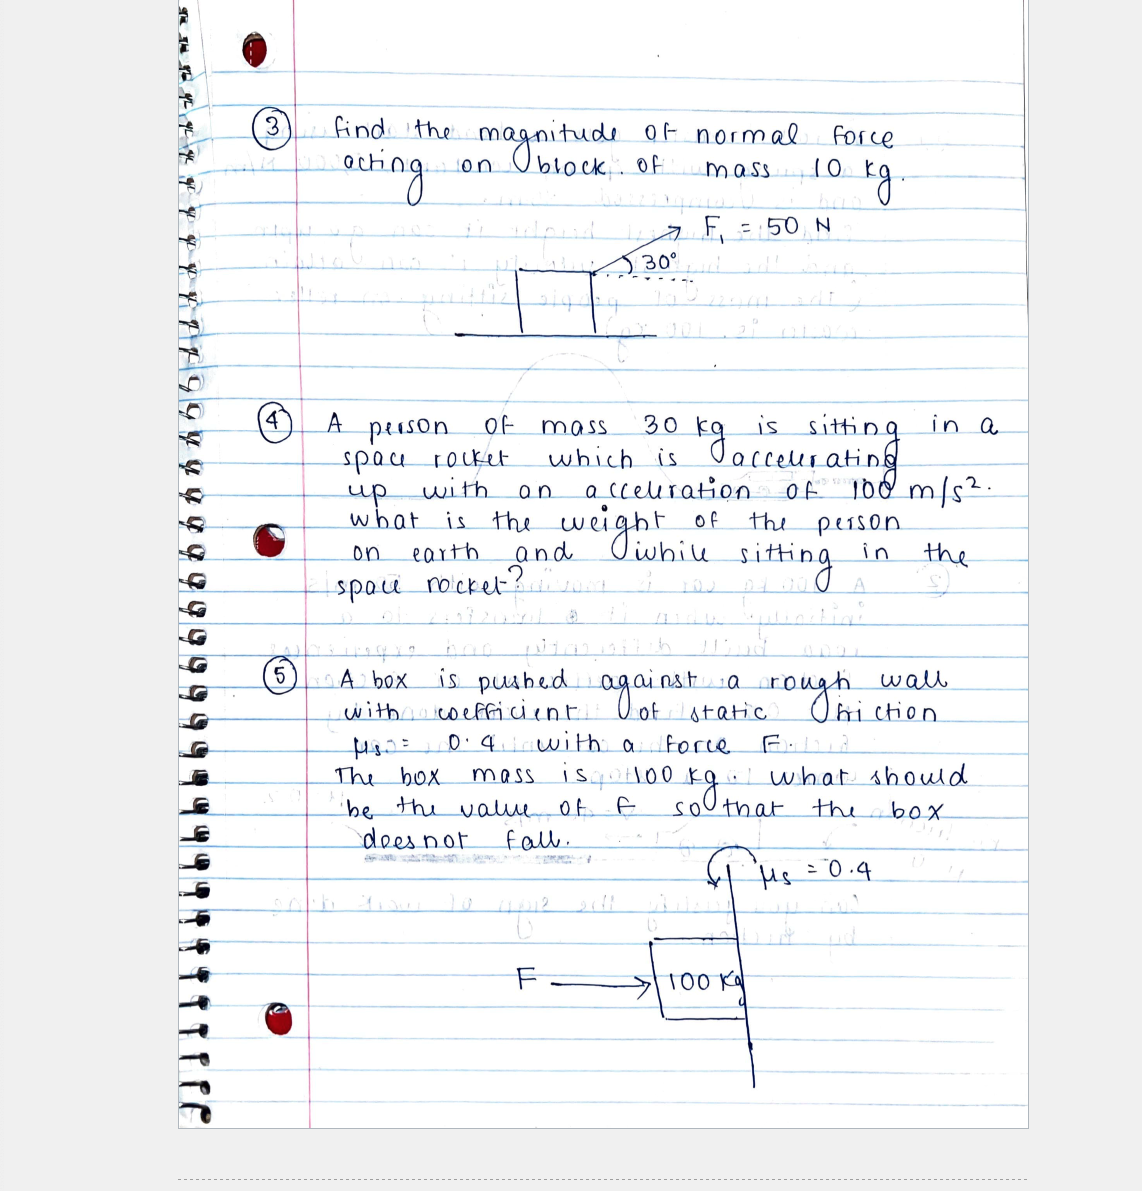 3 find the magnitude of normal force
acting on block. of mass 10 kg.
F₁ = 50 N
30°
4 A person of mass 30 kg is sitting in a
space rocket which is accelerating
up with an acceleration of 100 m/s².
what is the weight of the person
on earth and while sitting in the
space rocket?
5 A box is pushed against a rough wall
with coefficient of static friction
μs = 0.4 with a force F.
The box mass is 100 kg. what should
be the value of F so that the box
does not fall.
μs = 0.4
F
100 Kg